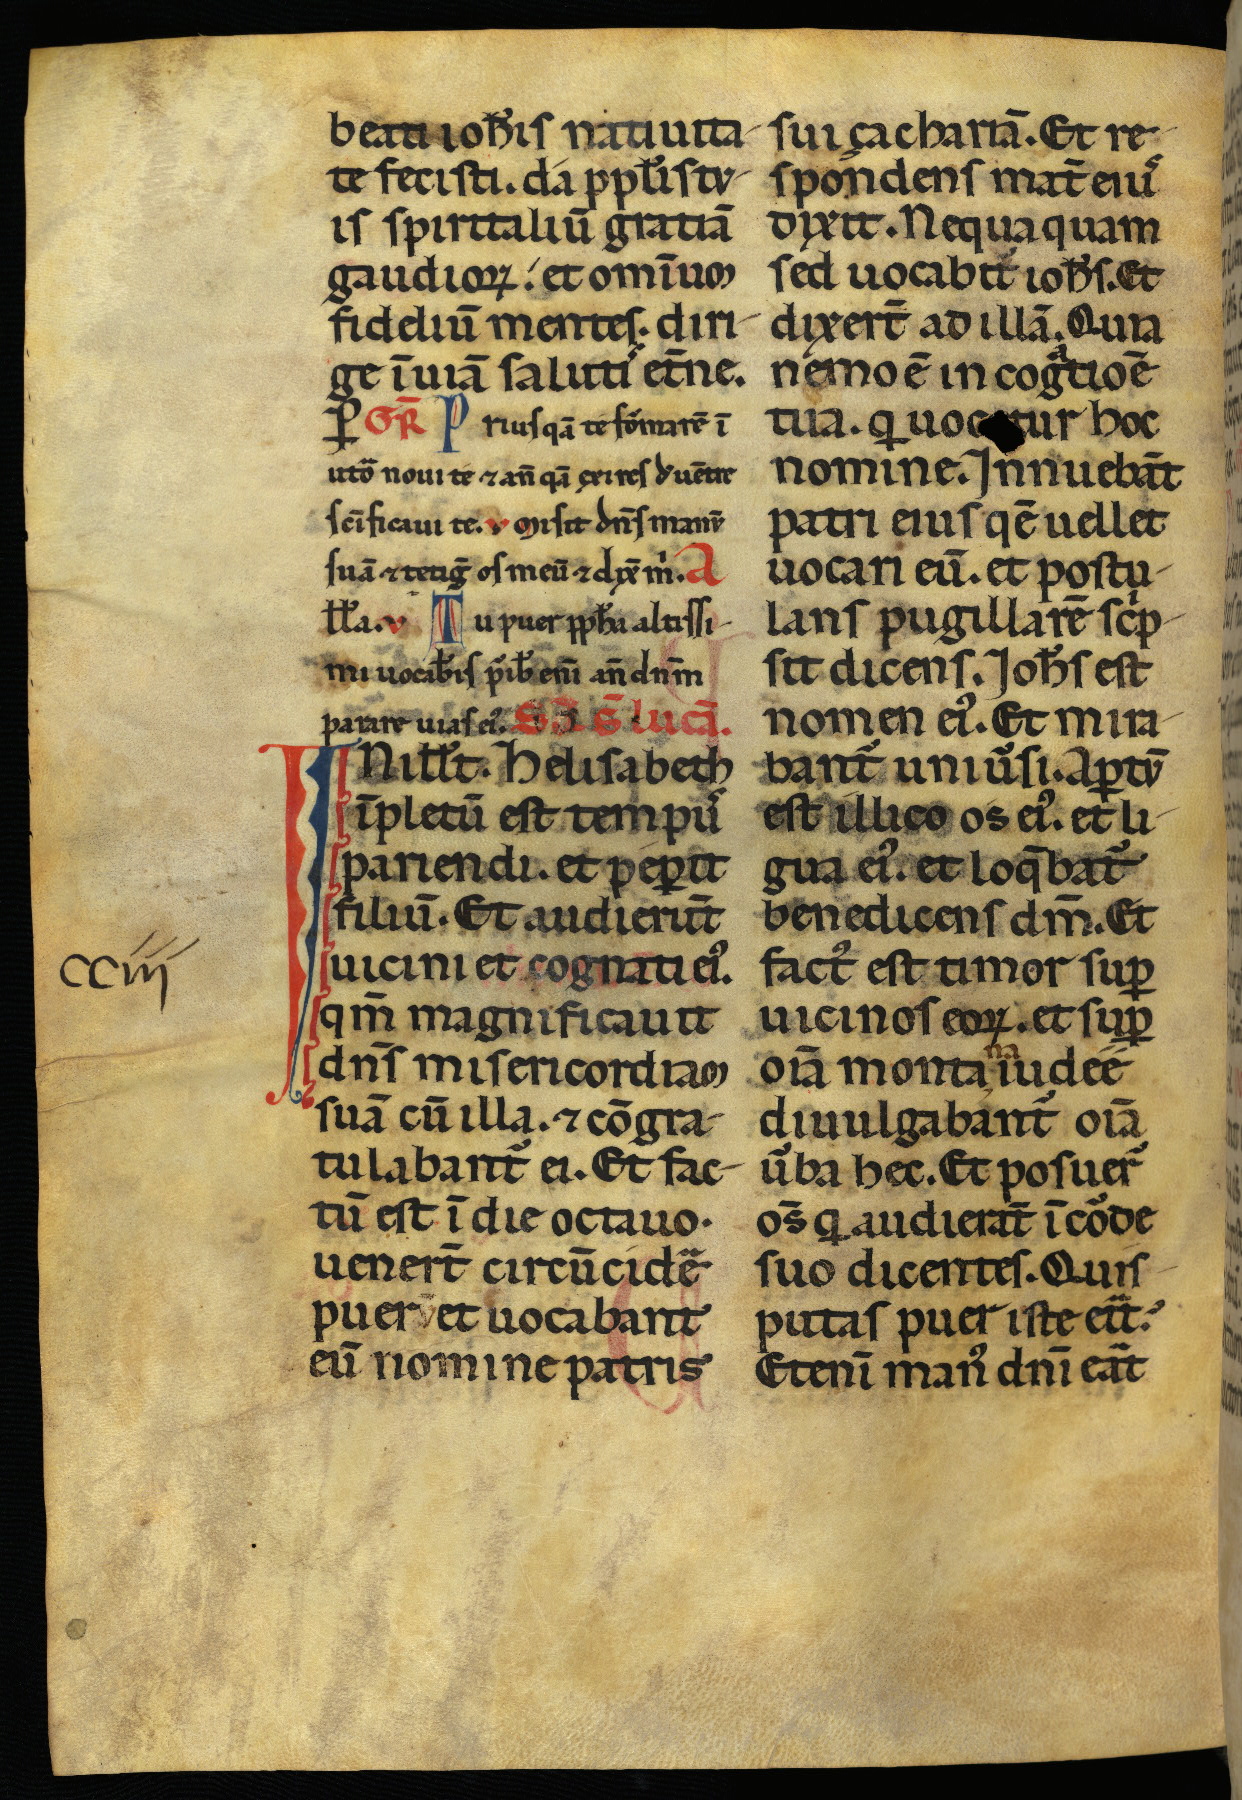 beati ioħis natiuita-
te fecisti. da ppłis tu-
is spiritaliū gratiā
gaudioꝝ. et omīum
fideliū mentes. diri-
ge ī uiā saluti᷒ et̄ne.
ꝑ GR̄ P rius qā te formarē ī
uto novi te ⁊ an̄ qā exires d̾ uētre
scīficaui te. v Misit dn̄s manū
suā ⁊ tetiḡ os meū ⁊ dix̄ m̓. A
lła. v Tu puer ꝓph̄a altissi-
mi uocab̓is p̓ib̓ eni᷒ an̄ dn̄m
parare uias ei᷒. S̄ S̄ lucā.
INiłłt. helisabeth
īpletū est tempu᷒
pariendi. et peꝑit
filiū. Et audierūt
uicini et cognati ei᷒.
qm̄ magnificauit
dn̄s misericordiam
suā cū illa. ⁊ cōgra-
tulabant᷑ ei. Et fac-
tū est ī die octauo.
uenert̄ circūcidē
puerū et uocabant
eū nomine patris
sui çachariā. Et re-
spondens mat̄ eiu᷒
dixit. Nequaquam
sed uocabit᷑ ioħs. Et
dixert̄ ad illā. Quia
nemo ē in cogͣtioē
tua. q uocetur hoc
nomine. Innuebāt
patri eius qē uellet
uocari eū. et postu-
lans pugillarē sc̓p-
sit dicens. Ioħs est
nomen ei᷒. Et mira-
bant᷑ uniu᷑si. Aꝑtū
est illico os ei᷒. et li-
gua ei᷒. et loq̄bat᷑
benedicens dm̄. Et
fact᷒ est timor suꝑ
uicinos eoꝝ. et suꝑ
oīa montana iudee
diuulgabant᷑ oīa
u᷑ba hec. Et posuer᷑
oms̄ q audierāt ī corde
suo dicentes. Quis
putas puer iste eͥt.
Etenī man᷒ dn̄i eāt
cciiij